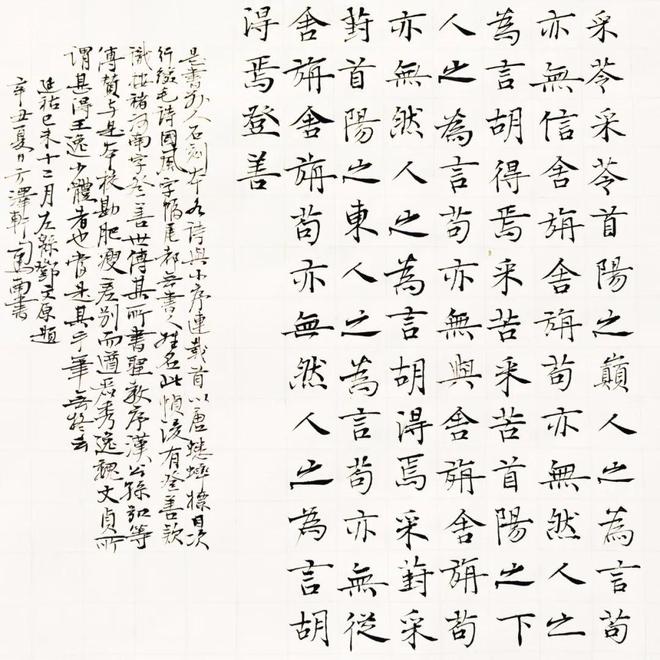 采苓采苓首陽之巔人之為言苟
亦無信舍旃舍旃苟亦無然人之
為言胡得焉采苦采苦首陽之下
人之為言苟亦無與舍旃舍旃苟
亦無然人之為言胡得焉采葑采
葑首陽之東人之為言苟亦無從
舍旃舍旃苟亦無然人之為言胡
得焉登善
是書人石刻本各詩與小序連載首以唐蟋蟀標目次
行綴毛詩國風字幅尾都無書人姓名此幀後有登善款
識按褚河南字登善世傳其所書聖教序漢公孫弘等
傳贊与是本校勘肥瘦差別而遒秀逸魏文貞所
謂其得王逸少體者也當是其手筆無
延祐己未十二月左綿鄧文原題
辛丑夏日方澤軒南書